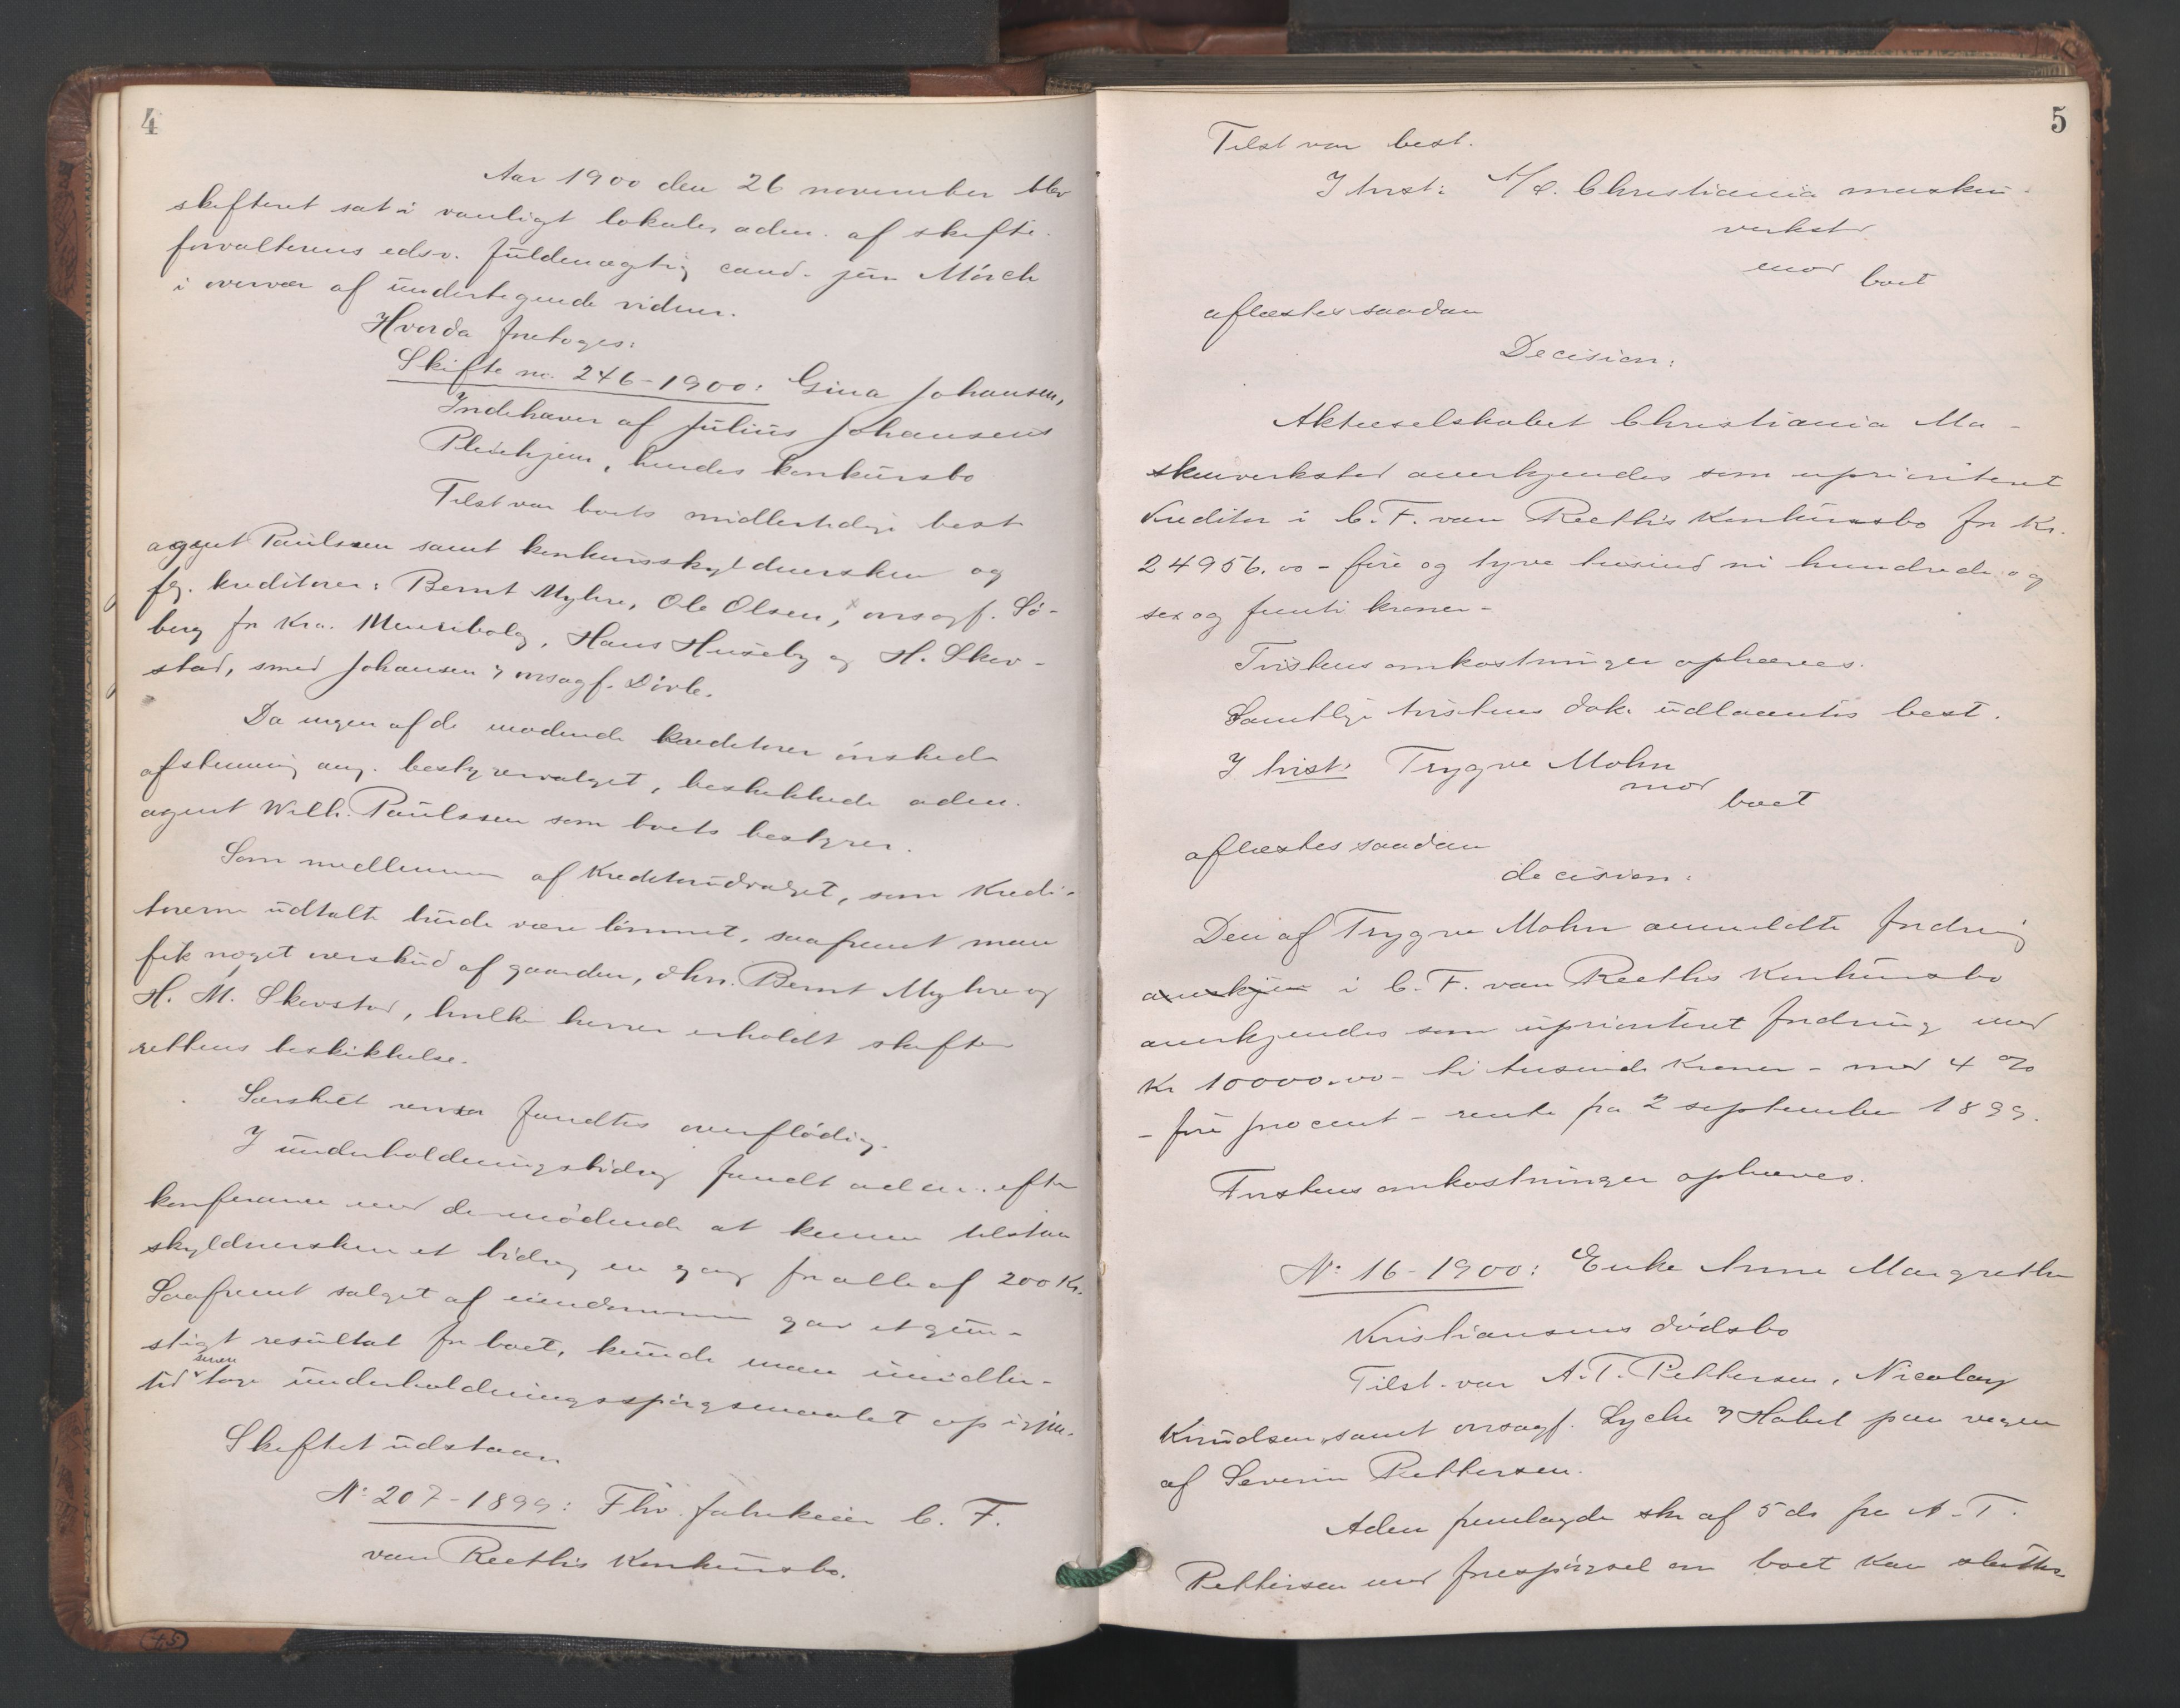 4
Aar 1900 den 26 november blev
skifteret sat i vanligt lokale, adm. af skifte-
forvalterens edsv. fuldmægtig cand. jur. Mörch
i overvær af undertegnede vidner.
Hvorda foretoges:
Skifte no. 246-1900: Gina Johansen,
Indehaver af Julius Johansens
Pleiehjem, hendes konkursbo
Tilst var boets midlertidige best.
agent Paulssen samt konkursskyldnersken og
flg. kreditorer: Bernt Myhre, Ole Olsen, orsagf. Sö-
berg for Kra. Meieribolag, Hans Huseby og H. Skev-
stad, smed Johansen & orsagf. Dövle.
Da ingen af de mödende kreditorer önskede
afstemning ang. bestyrervalget, beskikkede adm.
agent Wilh. Paulssen som boets bestyrer.
Som medlemmer af kreditorudvalget, som kredi-
torerne udtalte burde være lönnet, saafremt man
fik noget overskud af gaarden, dhrr. Bernt Myhre og
H. M. Skevstad, hvilke herrer erholdt skifte-
rettens beskikkelse.
Særskilt revisor fandtes overflödig.
I underholdningsbidrag fandt adm. efter
konferance med de mödende at kunne tilstaa
skyldnersken et bidrag en gang for alle af 200 Kr.
Saafremt salget af eiendommen gav et gun-
stigt resultat for boet, kunde man imidler-
tid senere tage underholdningsspörgsmaalet op igjen.
Skiftet udstaar.
No 207-1899: Fhv. fabrikeier C. F.
van Reeths Konkursbo.
5
Tilst var best.
I tvist: A/S. Christiania maskin-
verksted
mod
boet
aflæstes saadan
Decision:
Aktieselskabet Christiania Ma-
skinverksted anerkjendes som uprioriteret
Kreditor i C. F. van Reeth's Konkursbo for Kr.
24956.00 - fire og tyve tusind ni hundrede og
sex og femti kroner -
Tvistens omkostninger ophæves.
Samtlige tvistens dok. udlaantes best.
I tvist: Trygve Mohn
mod
boet
aflæstes saadan
decision:
Den af Trygve Mohn anmeldte fordring
anerkjen i C. F. van Reeths Konkursbo
anerkjendes som uprioriteret fordring med
Kr 10000.00 - ti tusinde Kroner - med 4 %
- fire procent - rente fra 2 september 1899.
Tvistens omkostninger ophæves.
No 16-1900: Enke Anne Margrethe
Kristiansens dödsbo
Tilst. var A. T. Pettersen, Nicolay
Knudsen, samt orsagf. Lycke & Habel paa vegne
af Severin Pettersen.
Adm fremlagde skr af 5 ds fra A. T.
Pettersen med forespörgsel om boet kan sluttes